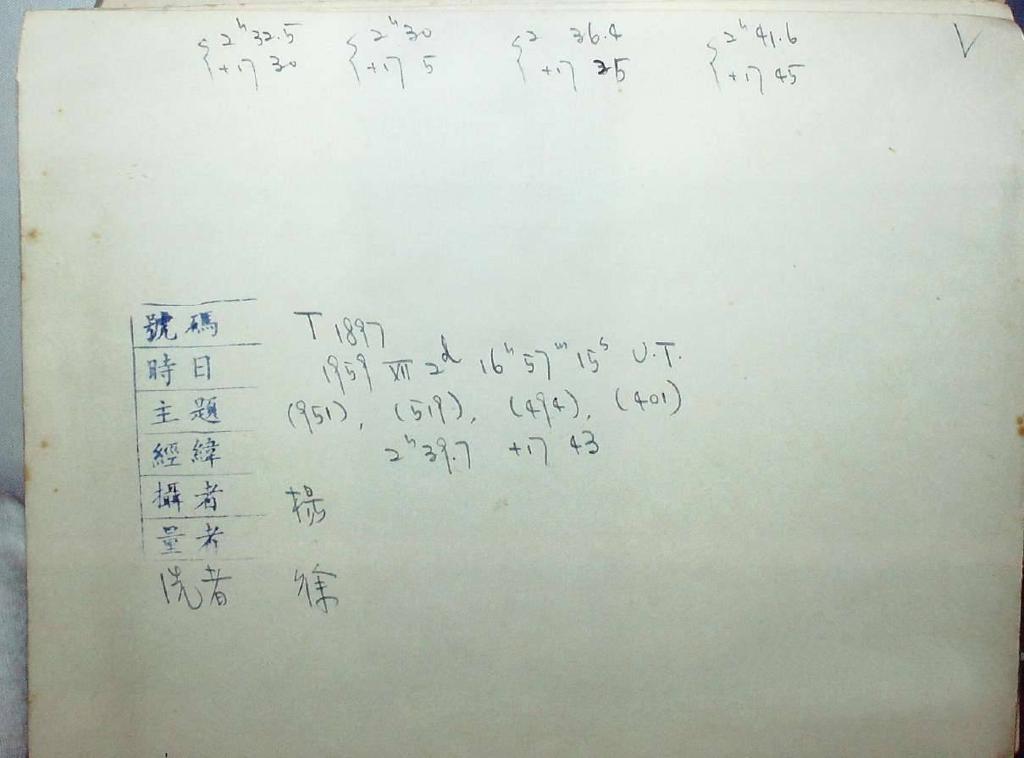 2ʰ 32.5 2ʰ 30 2 36.4 2ʰ 41.6 √
+17 30 +17 5 +17 25 +17 45
號碼 T 1897
時日 1959 XII 2ᵈ 16ʰ 57ᵐ 15ˢ U.T.
主題 (951), (519), (494), (401)
經緯 2ʰ 39.7 +17 43
攝者 楊
量者
洗者 徐